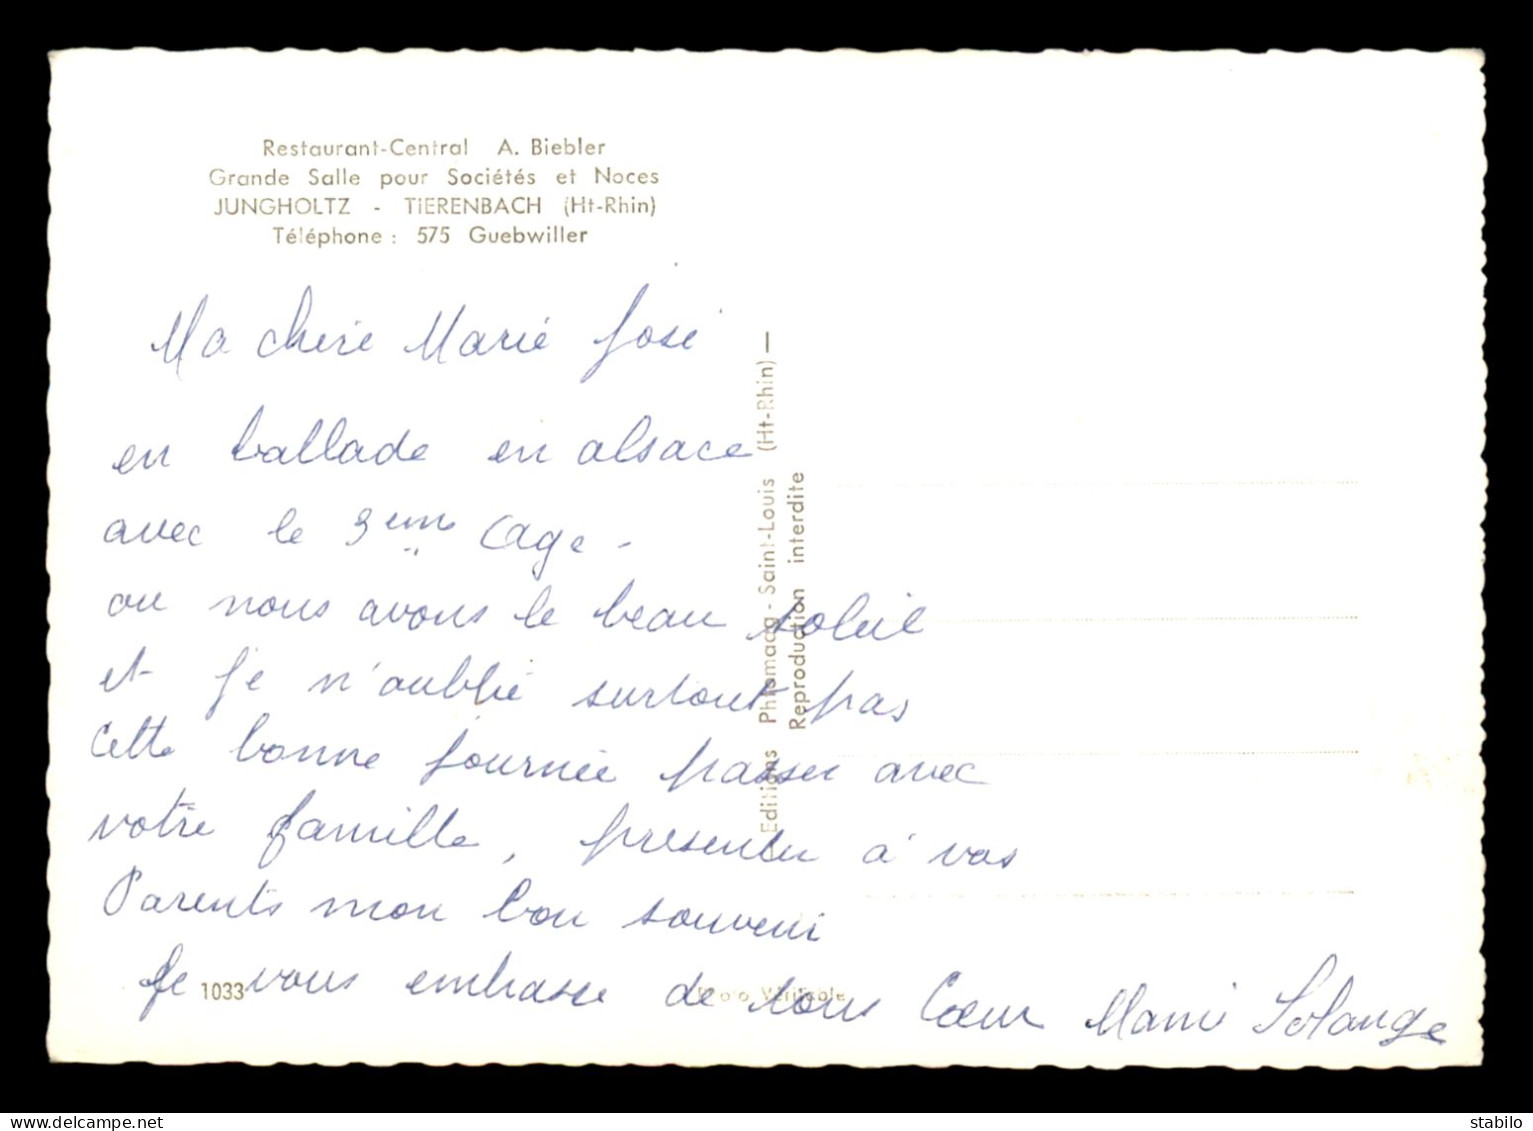 Restaurant-Central A. Biebler
Grande Salle pour Sociétés et Noces
JUNGHOLTZ - TiERENBACH (Ht-Rhin)
Téléphone : 575 Guebwiller
Ma chere Marie José
en ballade en alsace
avec le 3eme age -
ou nous avons le beau soleil
et je n'oublie surtout pas
cette bonne journée passer avec
votre famille, presenter à vos
Parents mon bon souvenir
Je vous embrasse de tous Cœur Mami Solange
1033
Photo Véritable
Editions Phlomacq - Saint-Louis (Ht-Rhin) —
Reproduction interdite
stabilo